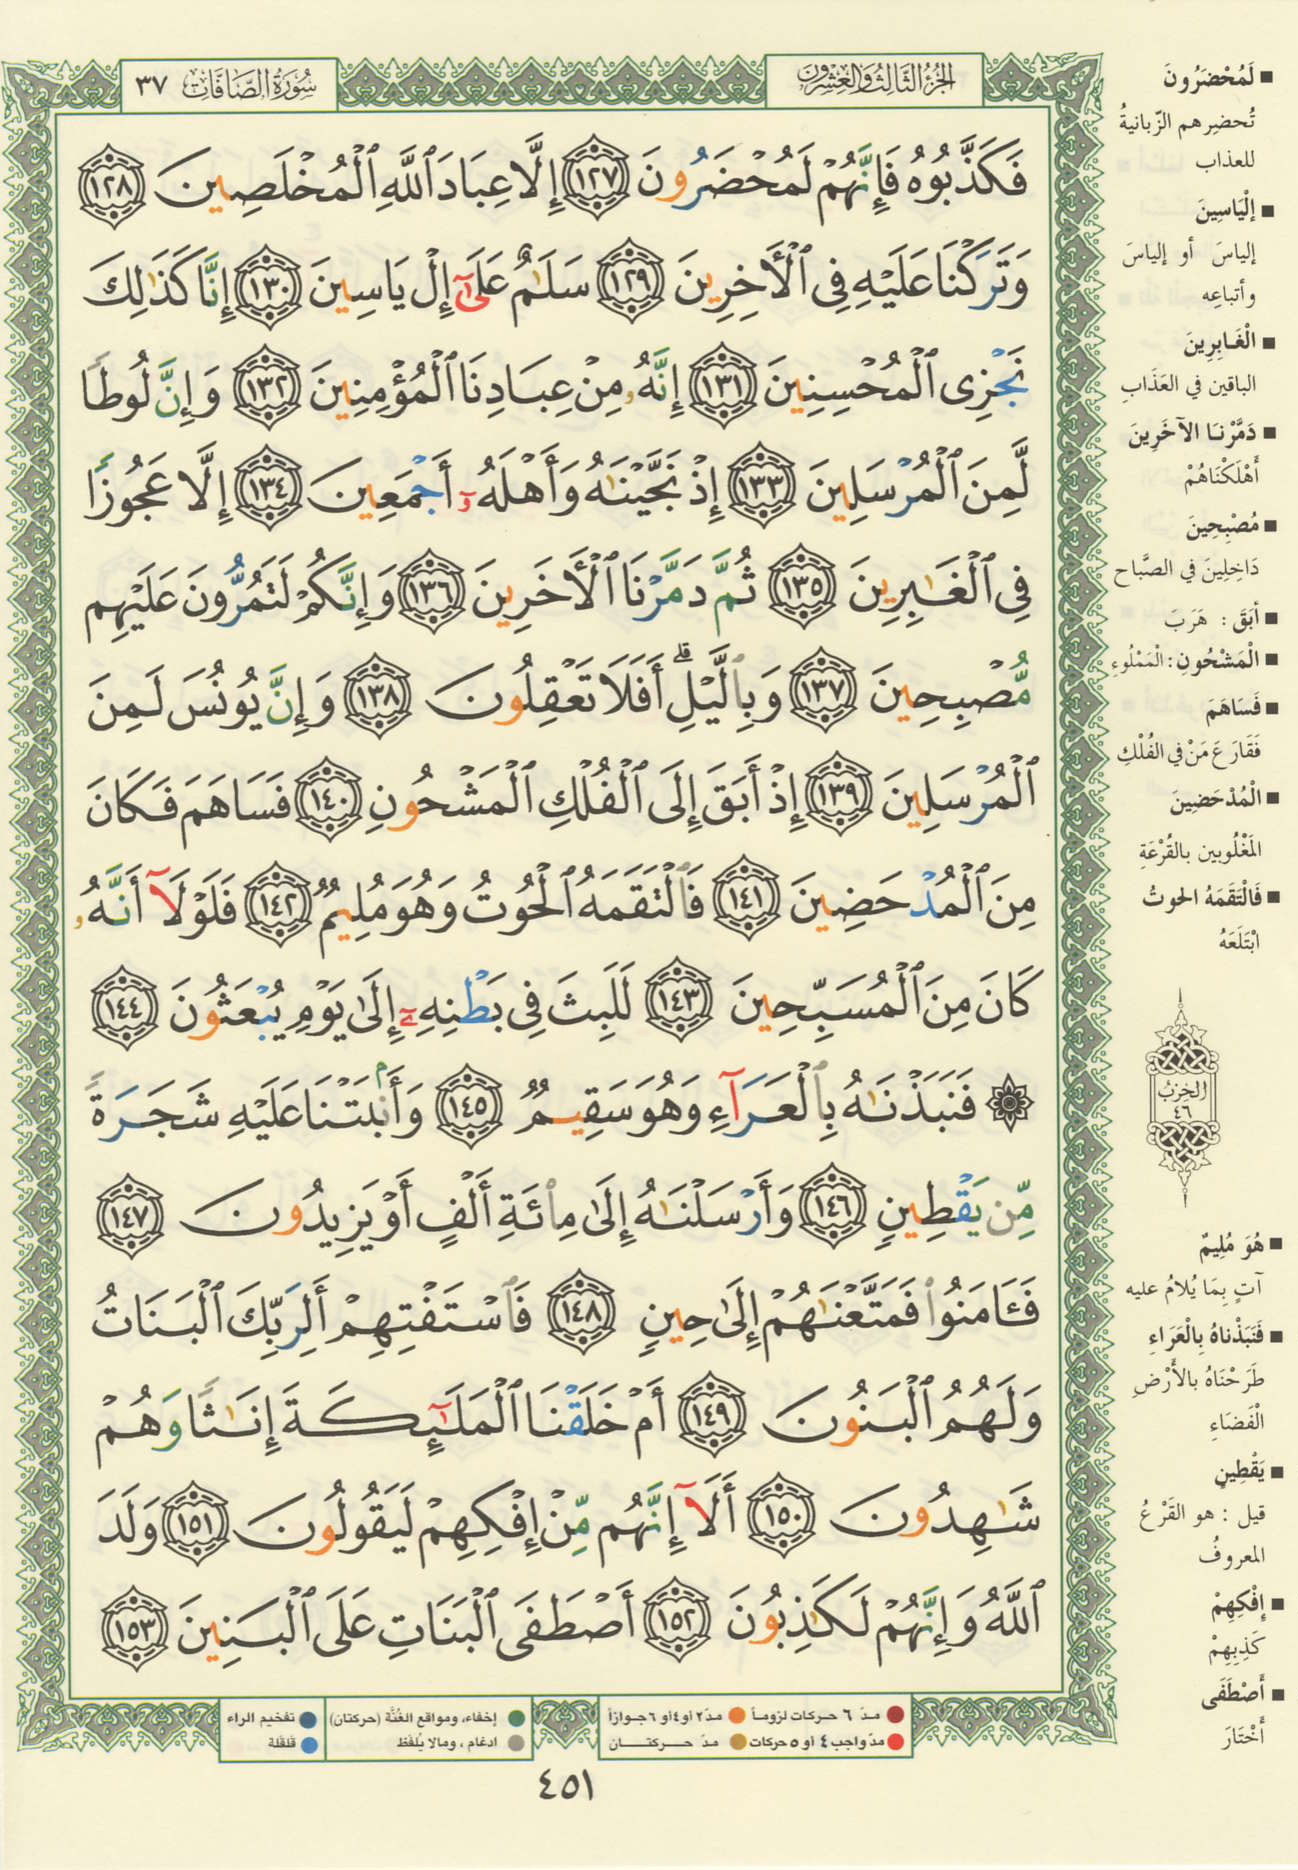 الجزء الثالث والعشرون
سورة الصافات ٣٧
فَكَذَّبُوهُ فَإِنَّهُمْ لَمُحْضَرُونَ ١٢٧ إِلَّا عِبَادَ ٱللَّهِ ٱلْمُخْلَصِينَ ١٢٨
وَتَرَكْنَا عَلَيْهِ فِى ٱلْأَخِرِينَ ١٢٩ سَلَٰمٌ عَلَىٰٓ إِلْ يَاسِينَ ١٣٠ إِنَّا كَذَٰلِكَ
نَجْزِى ٱلْمُحْسِنِينَ ١٣١ إِنَّهُۥ مِنْ عِبَادِنَا ٱلْمُؤْمِنِينَ ١٣٢ وَإِنَّ لُوطًا
لَّمِنَ ٱلْمُرْسَلِينَ ١٣٣ إِذْ نَجَّيْنَٰهُ وَأَهْلَهُۥٓ أَجْمَعِينَ ١٣٤ إِلَّا عَجُوزًا
فِى ٱلْغَٰبِرِينَ ١٣٥ ثُمَّ دَمَّرْنَا ٱلْأَخَرِينَ ١٣٦ وَإِنَّكُمْ لَتَمُرُّونَ عَلَيْهِم
مُّصْبِحِينَ ١٣٧ وَبِٱلَّيْلِ ۗ أَفَلَا تَعْقِلُونَ ١٣٨ وَإِنَّ يُونُسَ لَمِنَ
ٱلْمُرْسَلِينَ ١٣٩ إِذْ أَبَقَ إِلَى ٱلْفُلْكِ ٱلْمَشْحُونِ ١٤٠ فَسَاهَمَ فَكَانَ
مِنَ ٱلْمُدْحَضِينَ ١٤١ فَٱلْتَقَمَهُ ٱلْحُوتُ وَهُوَ مُلِيمٌ ١٤٢ فَلَوْلَآ أَنَّهُۥ
كَانَ مِنَ ٱلْمُسَبِّحِينَ ١٤٣ لَلَبِثَ فِى بَطْنِهِۦٓ إِلَىٰ يَوْمِ يُبْعَثُونَ ١٤٤
۞ فَنَبَذْنَٰهُ بِٱلْعَرَآءِ وَهُوَ سَقِيمٌ ١٤٥ وَأَنۢبَتْنَا عَلَيْهِ شَجَرَةً
مِّن يَقْطِينٍ ١٤٦ وَأَرْسَلْنَٰهُ إِلَىٰ مِا۟ئَةِ أَلْفٍ أَوْ يَزِيدُونَ ١٤٧
فَـَٔامَنُوا۟ فَمَتَّعْنَٰهُمْ إِلَىٰ حِينٍ ١٤٨ فَٱسْتَفْتِهِمْ أَلِرَبِّكَ ٱلْبَنَاتُ
وَلَهُمُ ٱلْبَنُونَ ١٤٩ أَمْ خَلَقْنَا ٱلْمَلَٰٓئِكَةَ إِنَٰثًا وَهُمْ
شَٰهِدُونَ ١٥٠ أَلَآ إِنَّهُم مِّنْ إِفْكِهِمْ لَيَقُولُونَ ١٥١ وَلَدَ
ٱللَّهُ وَإِنَّهُمْ لَكَٰذِبُونَ ١٥٢ أَصْطَفَى ٱلْبَنَاتِ عَلَى ٱلْبَنِينَ ١٥٣
لَمُحْضَرُونَ
تُحضِرهم الزّبانيةُ
للعذاب
إلْيَاسِينَ
إلياسَ أو إلياسَ
وأتباعِه
الْغَابِرِينَ
الباقين في العَذَابِ
دَمَّرْنَا الآخَرِينَ
أَهْلَكْنَاهُمْ
مُصْبِحِينَ
دَاخِلِينَ في الصَّباح
أبَقَ : هَرَبَ
الْمَشْحُونِ : الْمَمْلُوءِ
فَسَاهَمَ
فَقَارَعَ مَنْ في الفُلْكِ
الْمُدْحَضِينَ
المَغْلُوبين بالقُرْعَةِ
فَالْتَقَمَهُ الحوتُ
ابْتَلَعَهُ
الحزب
٤٦
هُوَ مُلِيمٌ
آتٍ بِمَا يُلَامُ عليه
فَنَبَذْناهُ بِالْعَرَاءِ
طَرَحْنَاهُ بالأَرْضِ
الْفَضَاءِ
يَقْطِينٍ
قيل : هو القَرْعُ
المعروفُ
إفْكِهِمْ
كَذِبِهِمْ
أَصْطَفَى
أَخْتَارَ
مدّ ٦ حركات لزوماً
مدّ ٢ أو ٤ أو ٦ جوازاً
إخفاء، ومواقع الغُنَّة (حركتان)
تفخيم الراء
مدّ واجب ٤ أو ٥ حركات
مدّ حركتان
ادغام ، ومالا يُلفظ
قلقلة
٤٥١